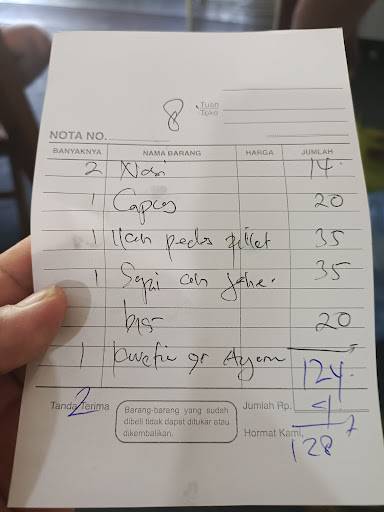 8
Tuan
Toko
NOTA NO.
BANYAKNYA NAMA BARANG HARGA JUMLAH
2 Nasi 14.
1 Capcay 20
1 Ikan pedas pillet 35
1 Sapi cah jahe. 35
20
1 gr Ayam
124.
4
128
Tanda Terima
2
Barang-barang yang sudah
dibeli tidak dapat ditukar atau
dikembalikan.
Jumlah Rp.
Hormat Kami,